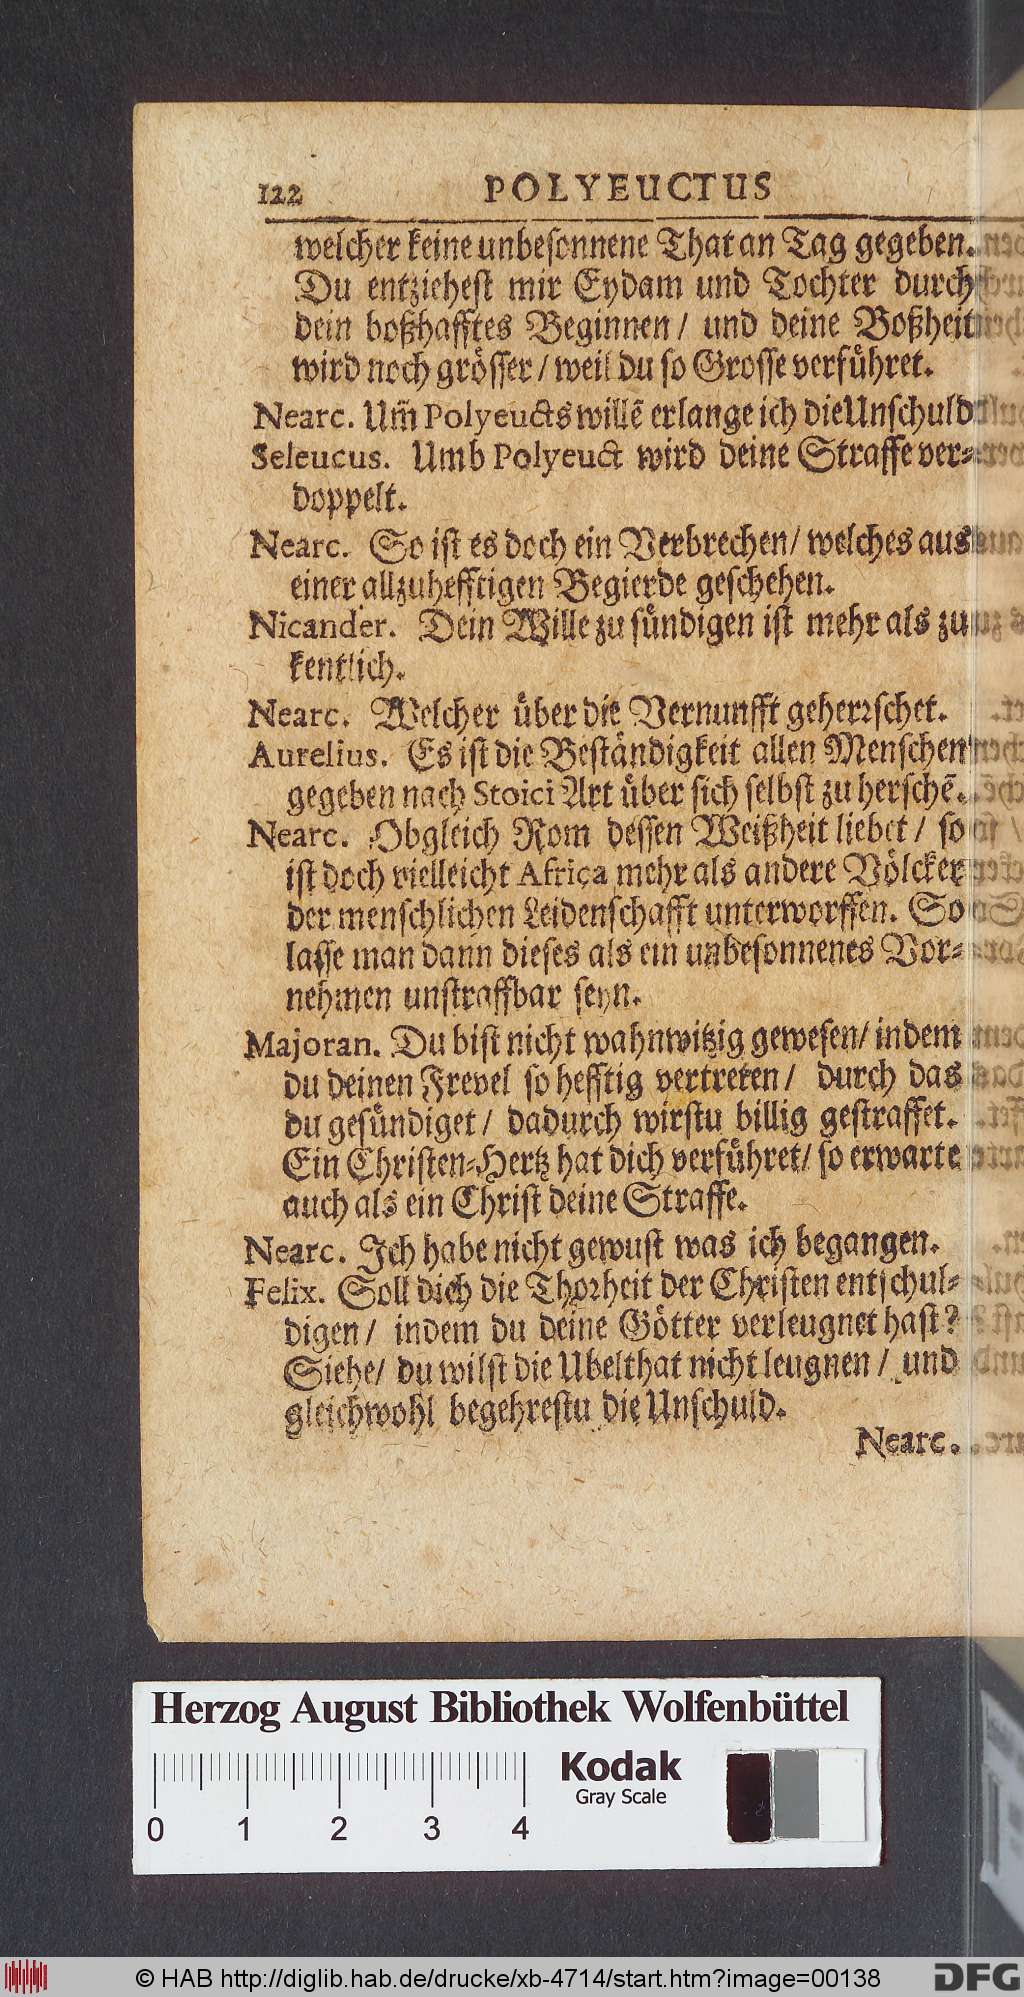 122 POLYEUCTUS
welcher keine unbesonnene That an Tag gegeben.
Du entziehest mir Eydam und Tochter durch
dein boßhafftes Beginnen / und deine Boßheit
wird noch grösser / weil du so Grosse verfuͤhret.
Nearc. Um̃ Polyeucts willē erlange ich die Unschuld
Seleucus. Umb Polyeuct wird deine Straffe ver-
doppelt.
Nearc. So ist es doch ein Verbrechen / welches aus
einer allzuhefftigen Begierde geschehen.
Nicander. Dein Wille zu suͤndigen ist mehr als zu
kentlich.
Nearc. Welcher uͤber die Vernunfft geherrschet.
Aurelius. Es ist die Bestaͤndigkeit allen Menschen
gegeben nach Stoici Art uͤber sich selbst zu herschē.
Nearc. Obgleich Rom dessen Weißheit liebet / so
ist doch vielleicht Africa mehr als andere Voͤlcker
der menschlichen Leidenschafft unterworffen. So
lasse man dann dieses als ein unbesonnenes Vor-
nehmen unstraffbar seyn.
Majoran. Du bist nicht wahnwitzig gewesen / indem
du deinen Frevel so hefftig vertreten / durch das
du gesuͤndiget / dadurch wirstu billig gestraffet.
Ein Christen-Hertz hat dich verfuͤhret / so erwarte
auch als ein Christ deine Straffe.
Nearc. Ich habe nicht gewust was ich begangen.
Felix. Soll dich die Thorheit der Christen entschul-
digen / indem du deine Goͤtter verleugnet hast?
Siehe / du wilst die Ubelthat nicht leugnen / und
gleichwohl begehrestu die Unschuld.
Nearc.
Herzog August Bibliothek Wolfenbüttel
Kodak
Gray Scale
0 1 2 3 4
© HAB http://diglib.hab.de/drucke/xb-4714/start.htm?image=00138
DFG